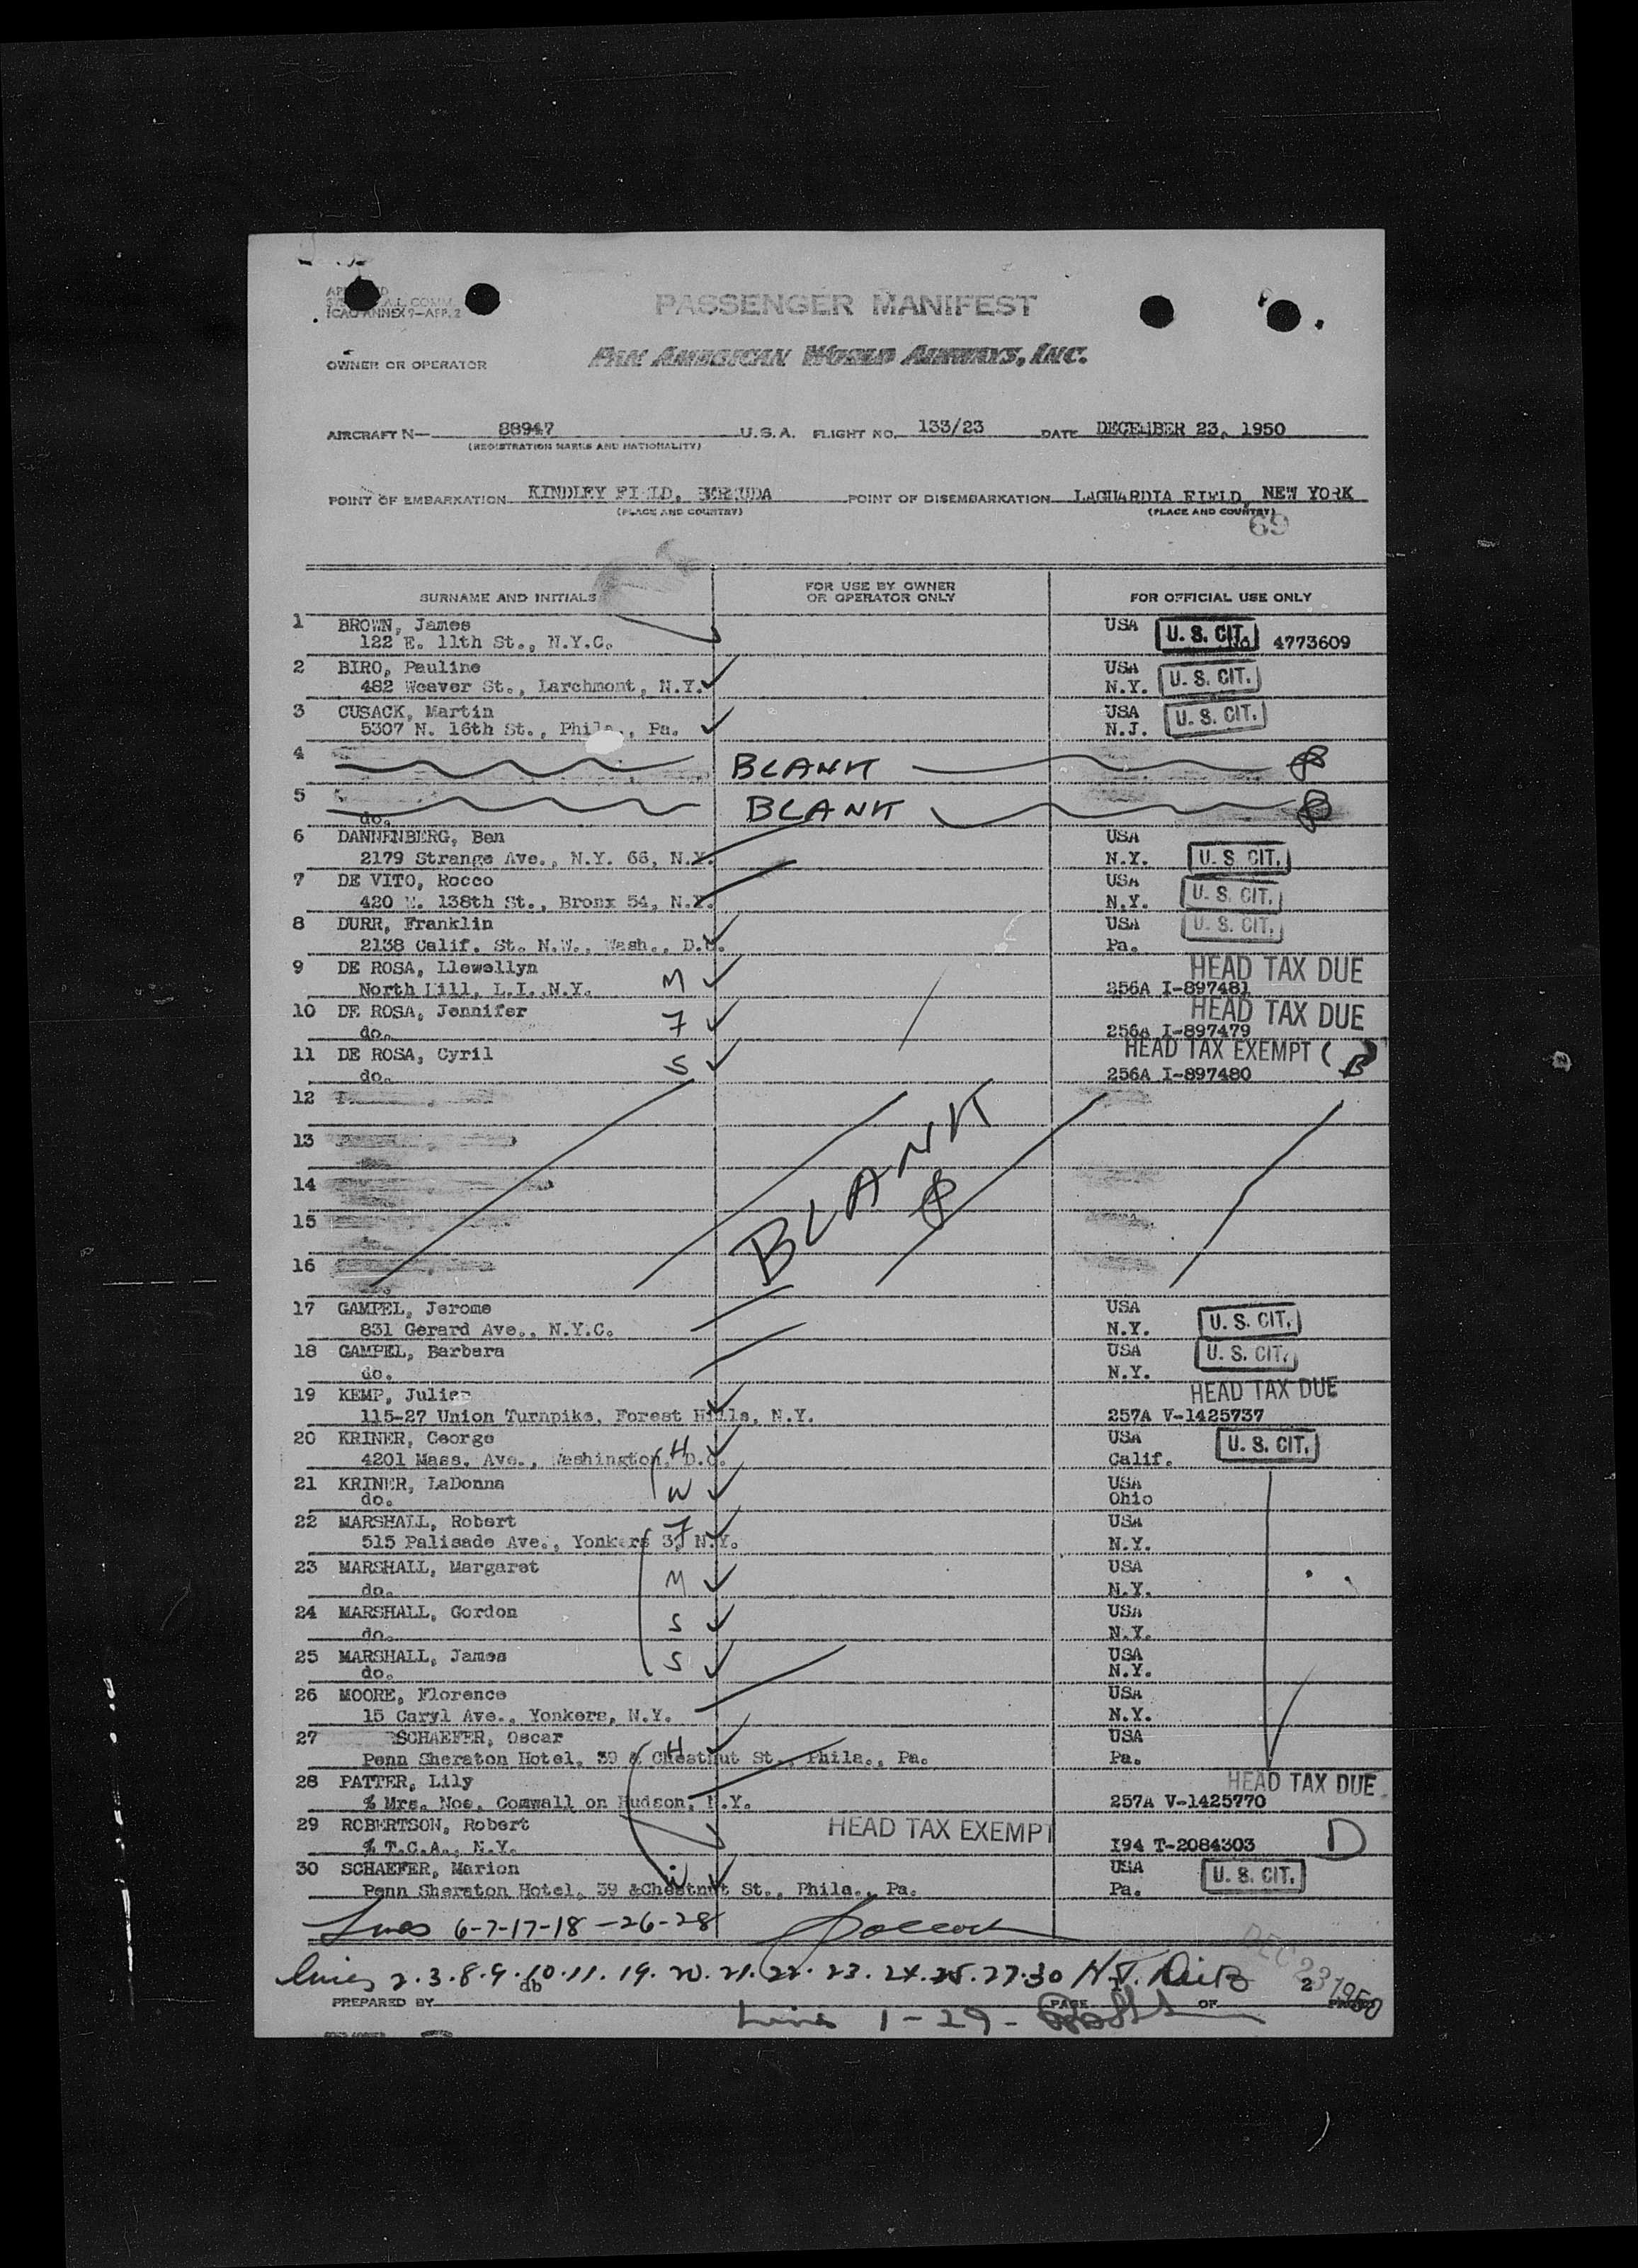 PASSENGER MANIFEST
ICAO ANNEX 9—APP. 2
OWNER OR OPERATOR PAN AMERICAN WORLD AIRWAYS, INC.
AIRCRAFT N— 88947 U.S.A. FLIGHT NO. 133/23 DATE DECEMBER 23, 1950
(REGISTRATION MARKS AND NATIONALITY)
POINT OF EMBARKATION KINDLEY FIELD, BERMUDA POINT OF DISEMBARKATION LAGUARDIA FIELD, NEW YORK
(PLACE AND COUNTRY) (PLACE AND COUNTRY)
69
SURNAME AND INITIALS FOR USE BY OWNER OR OPERATOR ONLY FOR OFFICIAL USE ONLY
1 BROWN, James USA U. S. CIT.
122 E. 11th St., N.Y.C. No 4773609
2 BIRO, Pauline USA U. S. CIT.
482 Weaver St., Larchmont, N.Y. N.Y.
3 CUSACK, Martin USA U. S. CIT.
5307 N. 16th St., Phila., Pa. N.J.
4 BLANK
5 BLANK
do.
6 DANNENBERG, Ben USA
2179 Strange Ave., N.Y. 66, N.Y. N.Y. U. S. CIT.
7 DE VITO, Rocco USA
420 E. 138th St., Bronx 54, N.Y. N.Y. U. S. CIT.
8 DURR, Franklin USA U. S. CIT.
2138 Calif. St. N.W., Wash., D.C. Pa.
9 DE ROSA, Llewellyn HEAD TAX DUE
North Hill, L.I.,N.Y. M 256A I-897481
10 DE ROSA, Jennifer F HEAD TAX DUE
do. 256A I-897479
11 DE ROSA, Cyril S HEAD TAX EXEMPT
do. 256A I-897480
12
13
14
15
16
BLANK
17 GAMPEL, Jerome USA U. S. CIT.
831 Gerard Ave., N.Y.C. N.Y.
18 GAMPEL, Barbara USA U. S. CIT.
do. N.Y.
19 KEMP, Julien HEAD TAX DUE
115-27 Union Turnpike, Forest Hills, N.Y. 257A V-1425737
20 KRINER, George H USA U. S. CIT.
4201 Mass. Ave., Washington, D.C. Calif.
21 KRINER, LaDonna W USA
do. Ohio
22 MARSHALL, Robert F USA
515 Palisade Ave., Yonkers 3, N.Y. N.Y.
23 MARSHALL, Margaret M USA
do. N.Y.
24 MARSHALL, Gordon S USA
do. N.Y.
25 MARSHALL, James S USA
do. N.Y.
26 MOORE, Florence USA
15 Caryl Ave., Yonkers, N.Y. N.Y.
27 SCHAEFER, Oscar H USA
Penn Sheraton Hotel, 39 & Chestnut St., Phila., Pa. Pa.
28 PATTER, Lily HEAD TAX DUE
% Mrs. Noe, Comwall on Hudson, N.Y. 257A V-1425770
29 ROBERTSON, Robert HEAD TAX EXEMPT D
% T.C.A., N.Y. I94 T-2084303
30 SCHAEFER, Marion W USA U. S. CIT.
Penn Sheraton Hotel, 39 &Chestnut St., Phila., Pa. Pa.
Lines 6-7-17-18-26-28
DEC 23 1950
Lines 2.3.8.9.10.11.19.20.21.22.23.24.25.27.30
db 2
PREPARED BY PAGE OF PAGES
Lines 1-29-